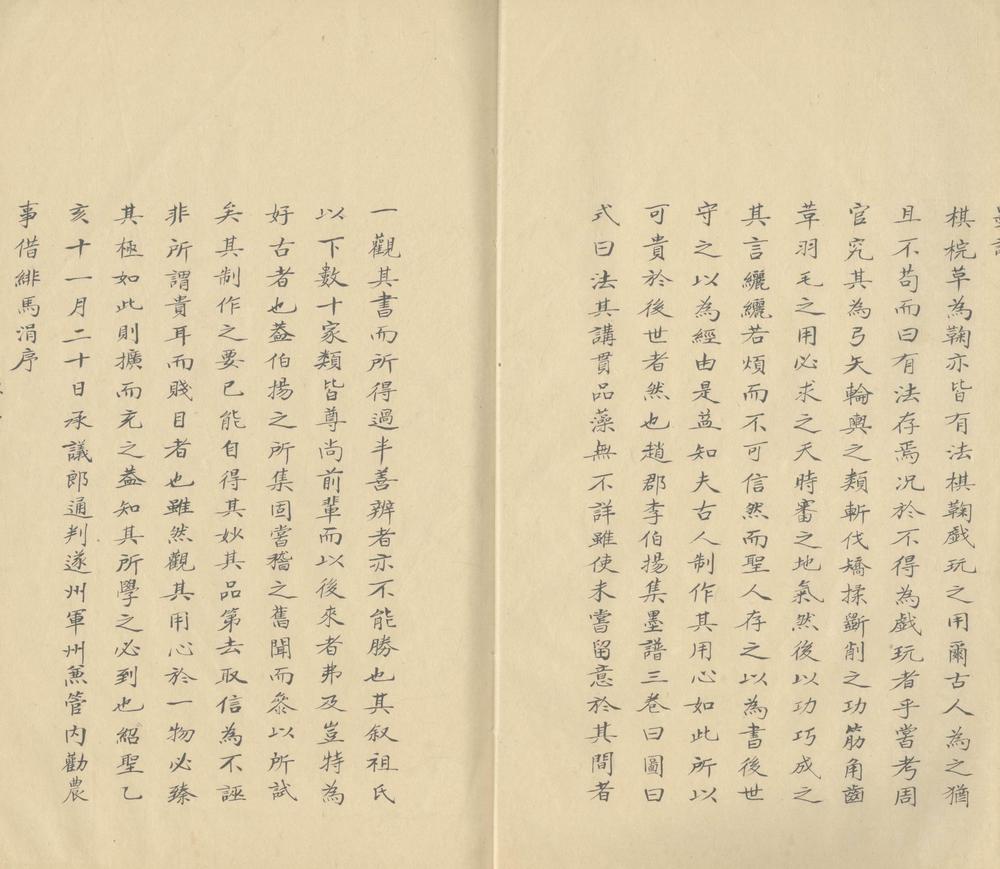 棋梡草為鞠亦皆有法棋鞠戲玩之用爾古人為之猶
且不苟而曰有法存焉况於不得為戲玩者乎嘗考周
官究其為弓矢輪輿之類斬伐矯揉斵削之功筋角齒
草羽毛之用必求之天時審之地氣然後以功巧成之
其言纚纚若煩而不可信然而聖人存之以為書後世
守之以為經由是益知夫古人制作其用心如此所以
可貴於後世者然也趙郡李伯揚集墨譜三卷曰圖曰
式曰法其講貫品藻無不詳雖使未嘗留意於其間者
一觀其書而所得過半善辨者亦不能勝也其叙祖氏
以下數十家類皆尊尚前輩而以後來者弗及豈特為
好古者也葢伯揚之所集固嘗稽之舊聞而叅以所試
矣其制作之要已能自得其妙其品第去取信為不誣
非所謂貴耳而賤目者也雖然觀其用心於一物必臻
其極如此則擴而充之葢知其所學之必到也紹聖乙
亥十一月二十日承議郎通判遂州軍州兼管内勸農
事借緋馬涓序